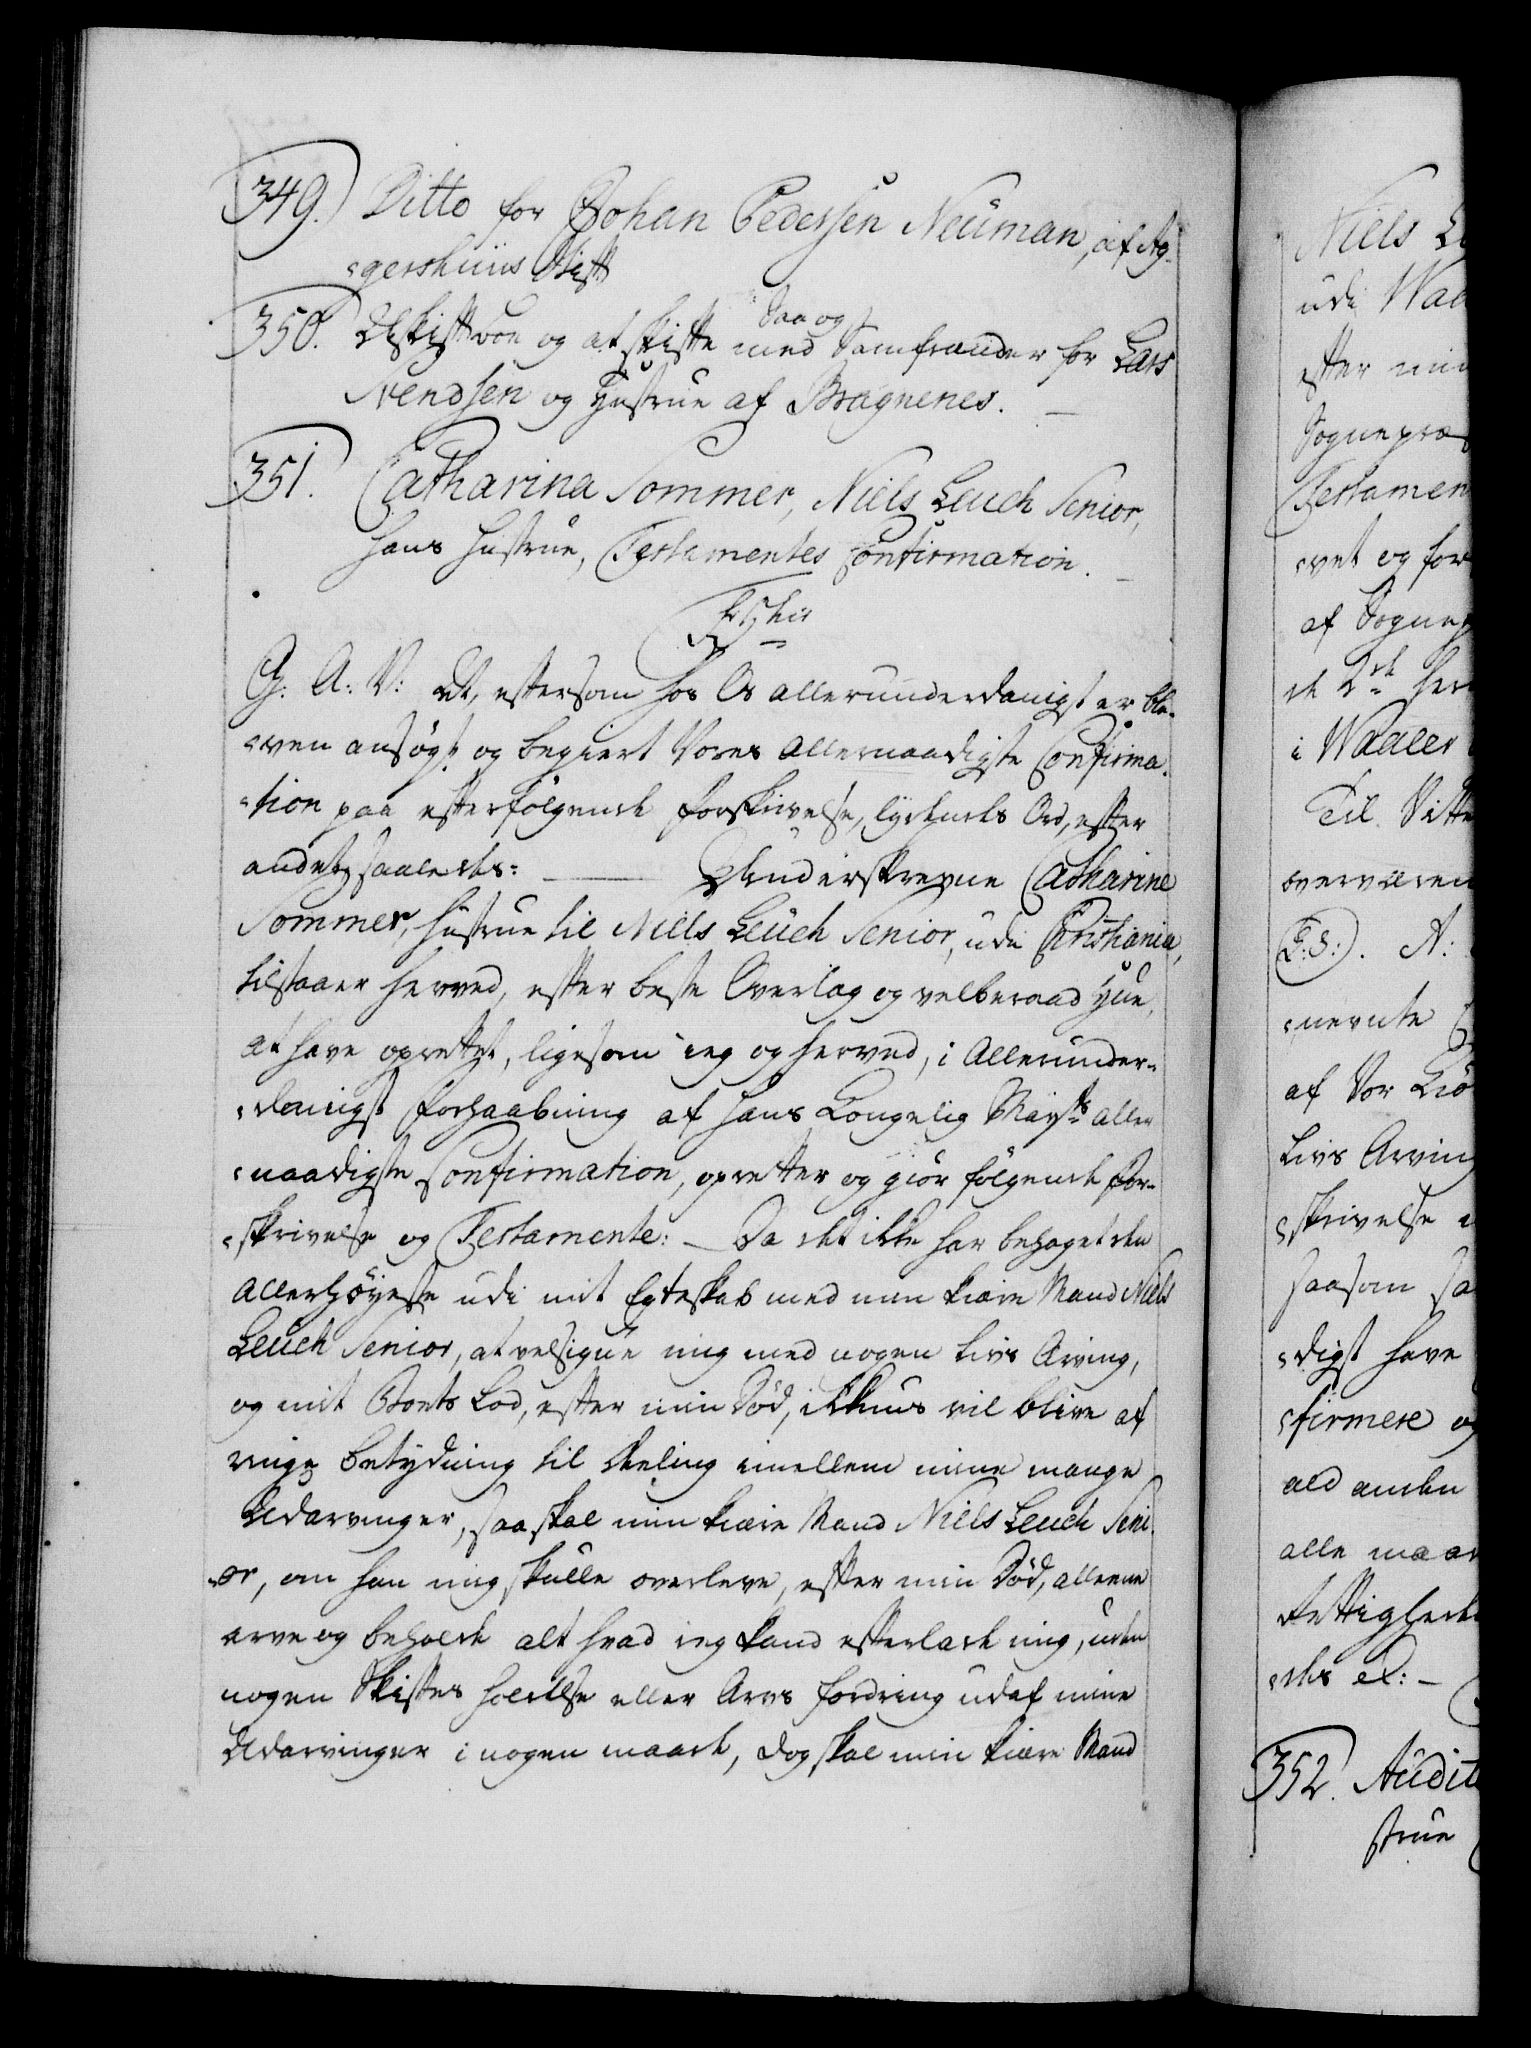 349. Ditto for Johan Pedersen Neuman, af Ag-
gershuus Stift
350. Uskiftvon og at skifte med Saa og Samfrænder for Lars
Svendsen og Hustrue af Bragnenes. —
351. Catharina Sommer, Niels Leuch Senior,
hans Hustrue, Testamentes Confirmation. —
G: A: V: At, eftersom hos Os allerunderdanigst er ble-
ven ansøgt og begiert Vores allernaadigste Confirma-
tion paa efterfølgende Forskrivelse, lydendes Ord, efter
andet, saaledes: — Underskrevne Catharine
Sommer, Hustrue til Niels Leuch Senior, udi Christiania,
tilstaaer herved, efter beste Overlag og velberaad Hue,
at have oprettet, ligesom ieg og herved, i Allerunder-
danigst Forhaabning af Hans Kongelig Mayts aller-
naadigste Confirmation, opretter og giør følgende For-
skrivelse og Testamente: — Da det ikke har behaget den
Allerhøyeste udi mit Egteskab med min kiære Mand Niels
Leuch Senior, at velsigne mig med nogen Livs Arving,
og mit Boets Lod, efter min Død, ikkuns vil blive af
ringe betydning til Deeling imellem mine mange
Udarvinger, saa skal min kiære Mand Niels Leuch Seni-
or, om han mig skulle overleve, efter min Død, alleene
arve og beholde alt hvad ieg kand efterlade mig, uden
nogen Skiftes holdelse eller Arvs fordring udaf mine
Udarvinger i nogen maade, dog skal min kiære Mand
Niels
udi
efter min
Sognepræ
Testamen
vet og for
af Sognep
i Waaler
Til Vitte
overværen
A:
nevnte
af Vor
Livs Arving
skrivelse
saasom
digst have
firmere og
ald anden
alle maad
Rettighed
des el: —
352. Audit
strue